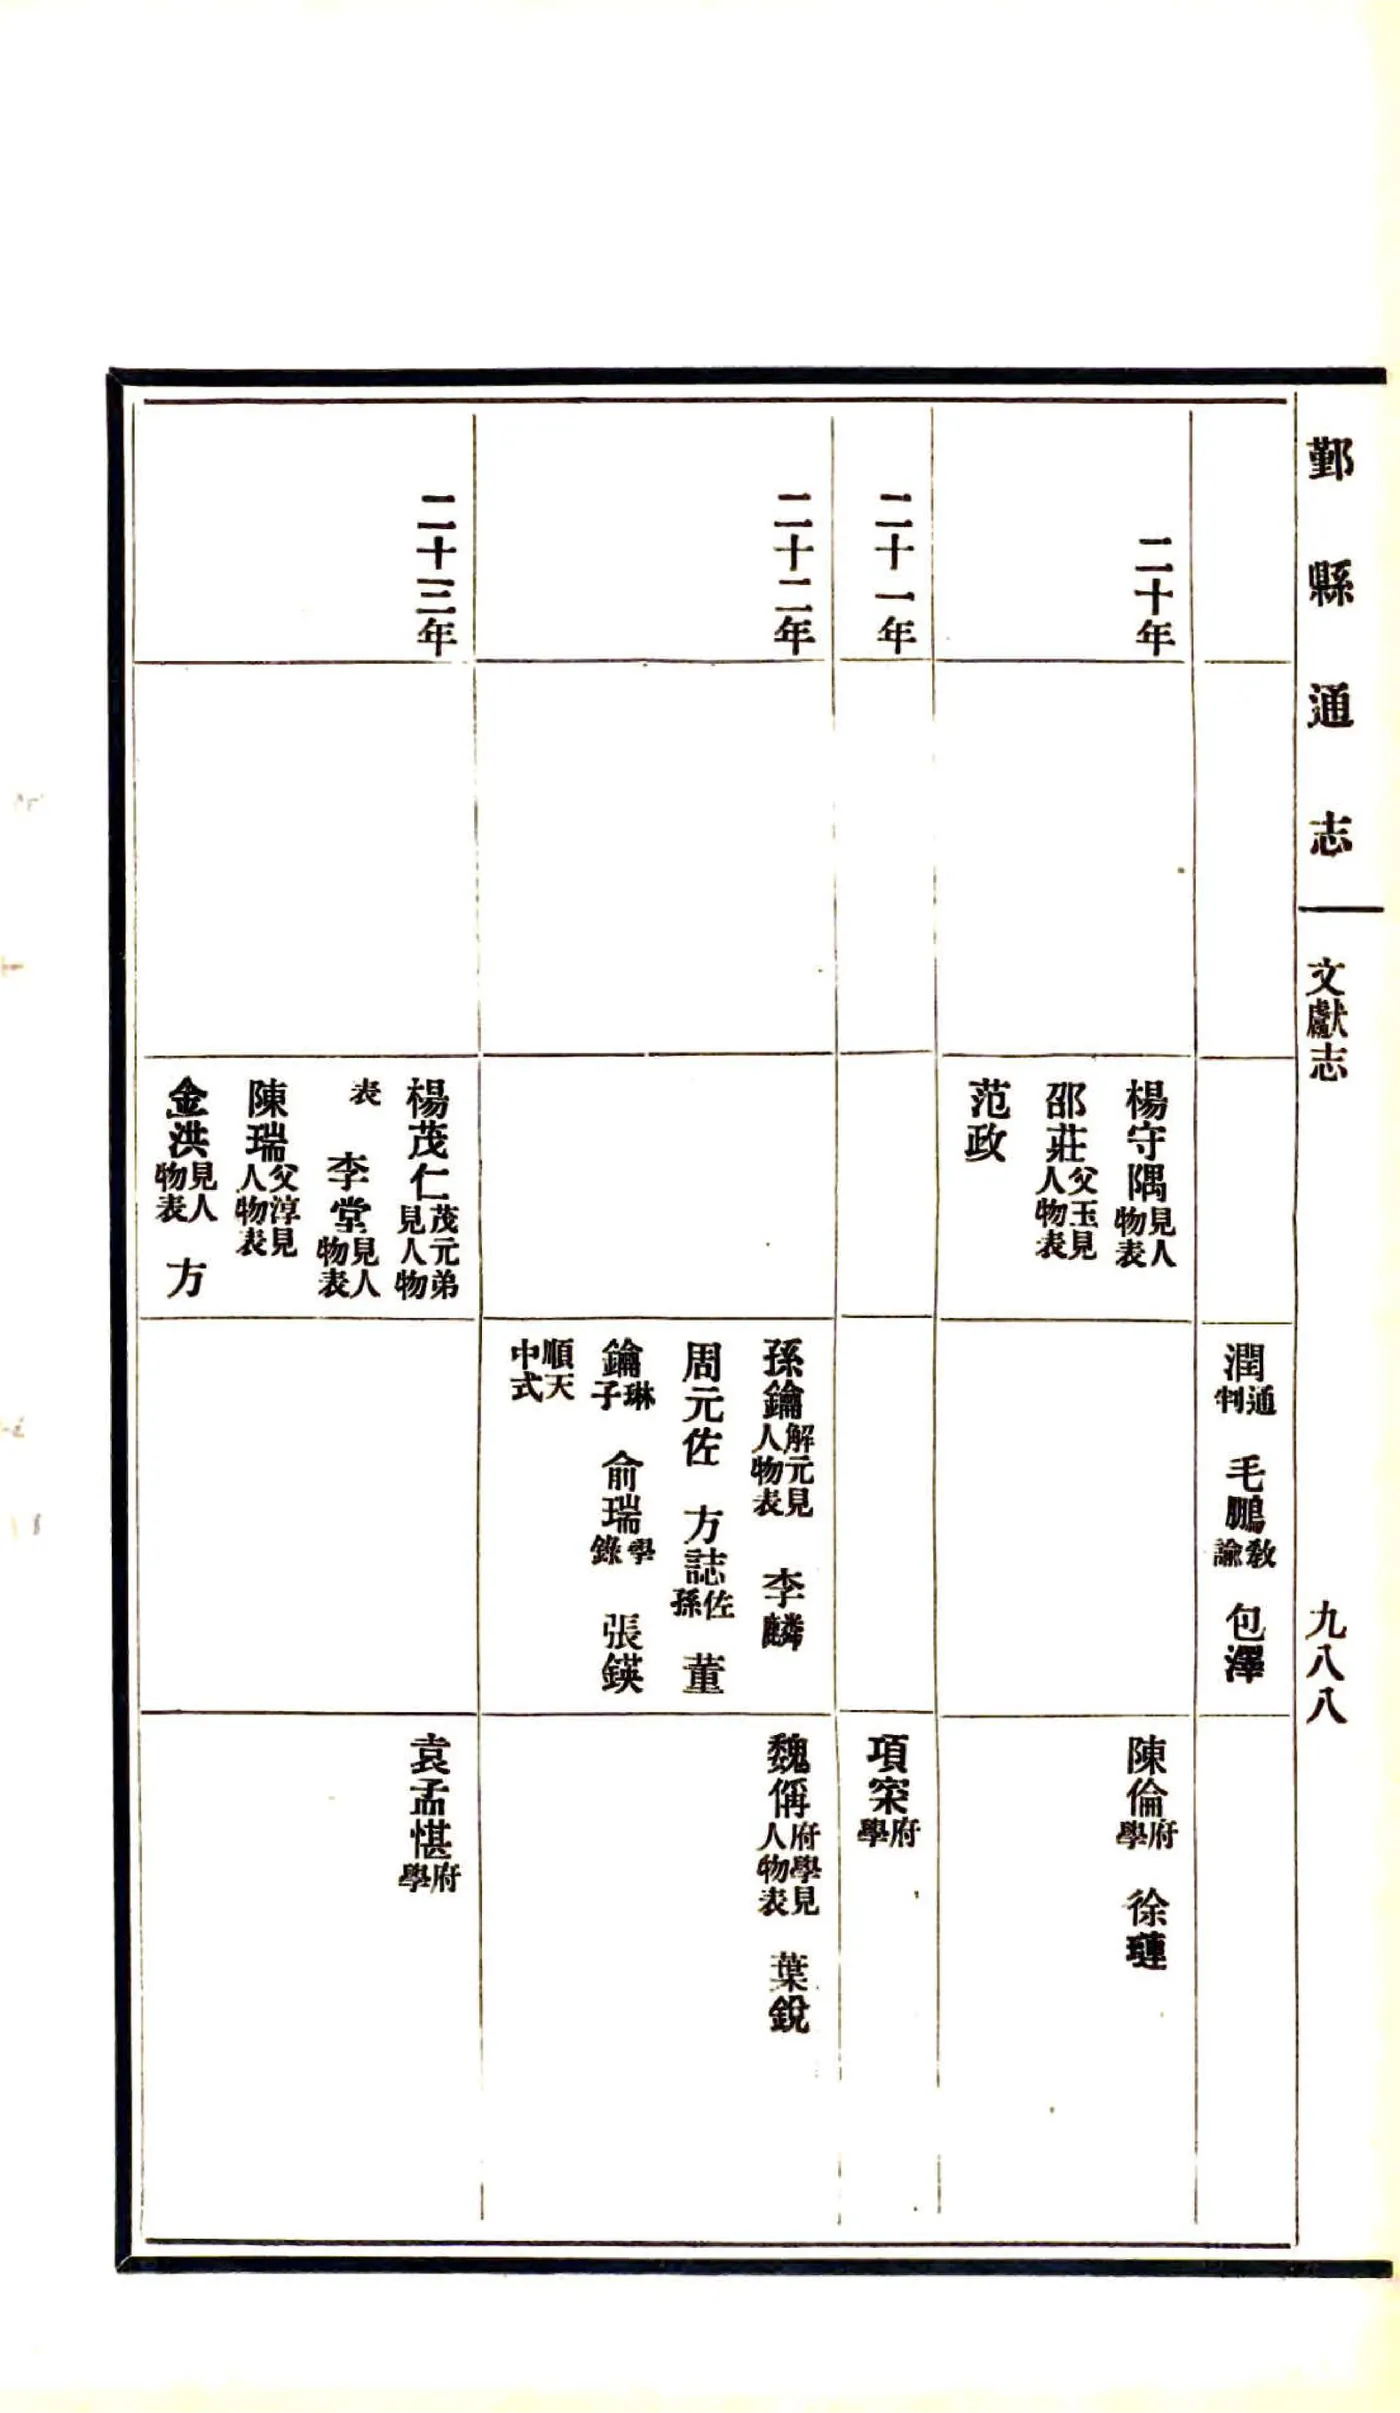 鄞縣通志
文獻志
九八八
潤通判　毛鵬教諭　包澤
二十年
楊守隅見人物表
邵莊父玉見人物表
范政
陳倫府學　徐璉
二十一年
項寀府學
二十二年
孫鑰解元見人物表　李麟
周元佐　方誌佐孫　董
鑰琳子　俞瑞學錄　張鍈
順天中式
魏偁府學見人物表　葉銳
二十三年
楊茂仁茂元弟見人物
表　李堂見人物表
陳瑞父淳見人物表
金洪見人物表　方
袁孟愖府學